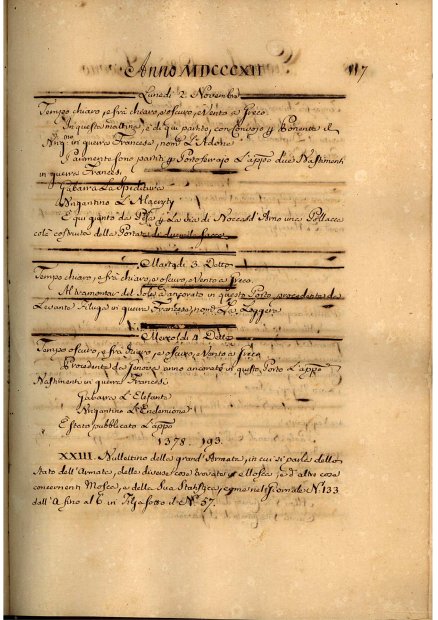 Anno MDCCCXII
117
Lunedì 2 Novembre
Tempo chiaro, e frà chiaro, e oscuro, e Vento a Greco
In questa mattina, è di qui partito, con Convojo p Ponente il
Brig. in guerra Francese, nom. L'Adone
Parimente sono partiti p Portoferrajo L'appo due Bastimenti
in guerra Francesi,
Gabarra La
Brigantino L'Alacryty
È qui giunta da Pisa, p La via di Bocca d'Arno una Pollacca
colà costruita della Portata di
Martedì 3 Detto
Tempo chiaro, e frà chiaro, e oscuro, e Vento a Greco
Al tramontar del Sole è ancorato in questo Porto, procedente da
Levante Filuga in guerra Francese, nom. La
Mercoldì 4 Detto
Tempo oscuro, e frà chiaro, e oscuro, e Vento a Greco
Procedente da Genova anno ancorato in questo Porto L'appo
Bastimenti in guerra Francesi
Gabarra L'Elefante
Brigantino L'Endemione
È stato pubblicato L'appo
1378. 193.
XXIII. Bullettino della grand'Armata, in cui si parla dello
Stato dell'Armata, delle diverse cose trovate a Mosca, e d'altre cose
concernenti Mosca, e della Sua Statistica, come nel Giornale N. 133
dall'A fino al C in Filza sotto il N. 57.